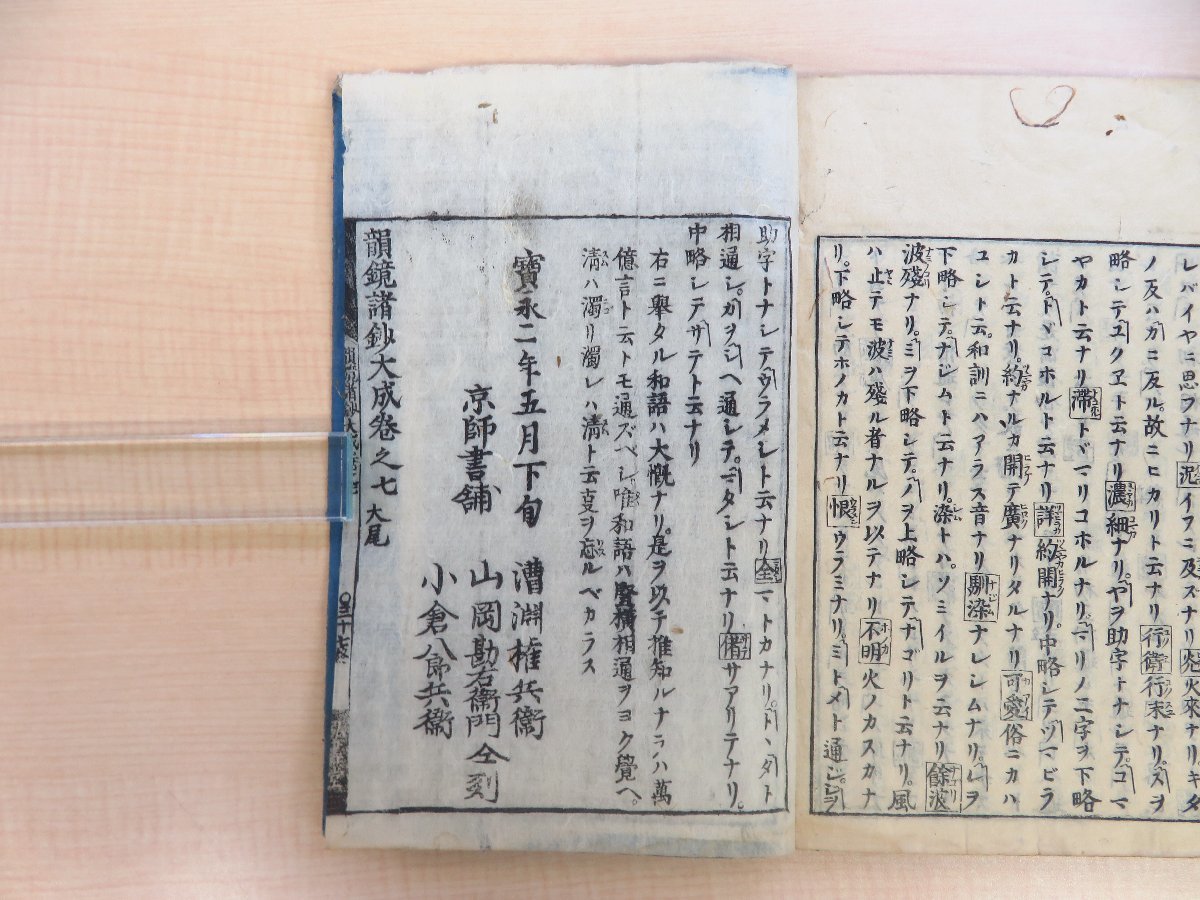 レバイヤニ思フナリ泥イフニ及ズナリ
ノ反ハガニ反ル。故ニヒカリト云ナリ行衛行末ナリ。スヲ
略シテユクヱト云ナリ濃細ナリ。ヤヲ助字トナシテ。コマ
ヤカト云ナリ滞トヾマリコホルナリ。マリノ二字ヲ下略
シテ。トヾコホルト云ナリ詳約開ナリ。中略シテツマビラ
カト云ナリ。約ナルカ開テ廣ナリタルナリ可愛俗ニカハ
ユシト云。和訓ニハアラス音ナリ馴染ナレシムナリ。レヲ
下略シテ。ナジムト云ナリ。染トハ。ソミイルヲ云ナリ餘波
波殘ナリ。ミヲ下略シテ。ノヲ上略シテナゴリト云ナリ。風
ハ止テモ波ハ殘ル者ナルヲ以テナリ不明火ノカスカナ
リ。下略シテホノカト云ナリ恨ウラミナリ。ミトメト通シ。シヲ
助字トナシテウラメシト云ナリ全マトカナリ。ドヽダト
相通シ。カヲシヘ通シテ。マタシト云ナリ偖サアリテナリ。
中略シテサテト云ナリ
右ニ舉タル和語ハ大概ナリ。是ヲ以テ推知ルナラハ萬
億言ト云トモ通ズベシ。唯和語ハ竪橫相通ヲヨク覺ヘ。
清ハ濁リ濁レハ清ト云叓ヲ忘ルベカラス
寶永二年五月下旬
京師書舖
漕淵權兵衞
山岡勘右衞門 仝刻
小倉八郎兵衞
韻鏡諸鈔大成卷之七 大尾